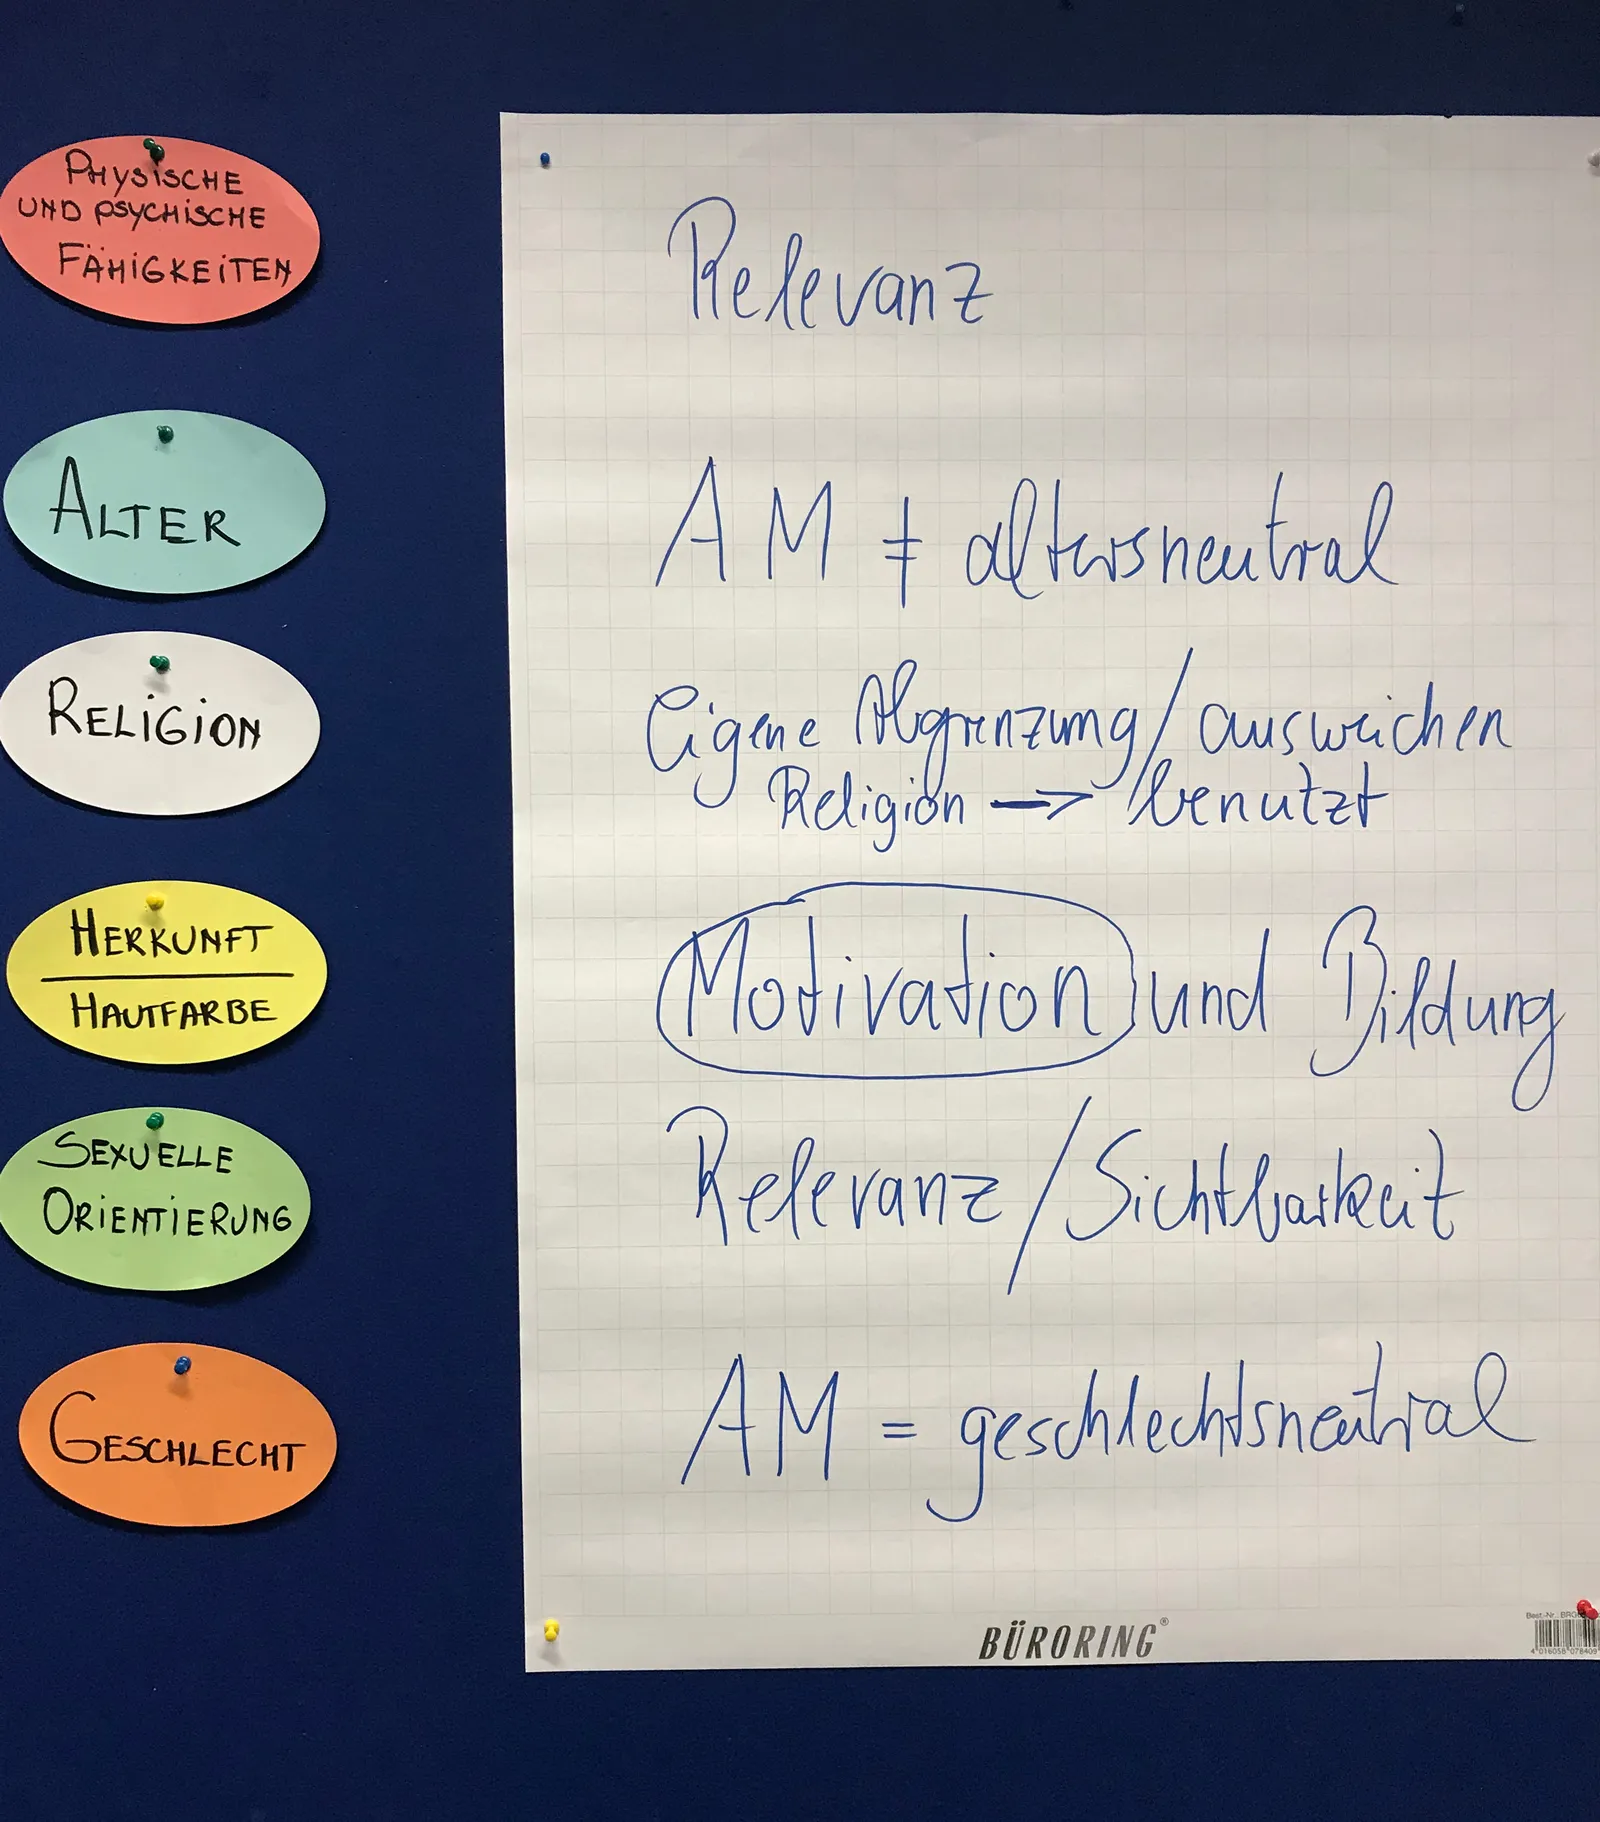 PHYSISCHE
UND PSYCHISCHE
FÄHIGKEITEN
Relevanz
ALTER
AM ≠ altersneutral
RELIGION
Eigene Abgrenzung/ausweichen
Religion → benutzt
HERKUNFT
HAUTFARBE
Motivation und Bildung
SEXUELLE
ORIENTIERUNG
Relevanz/Sichtbarkeit
GESCHLECHT
AM = geschlechtsneutral
BÜRORING®
Best.-Nr.: BRG
4 016058 078409